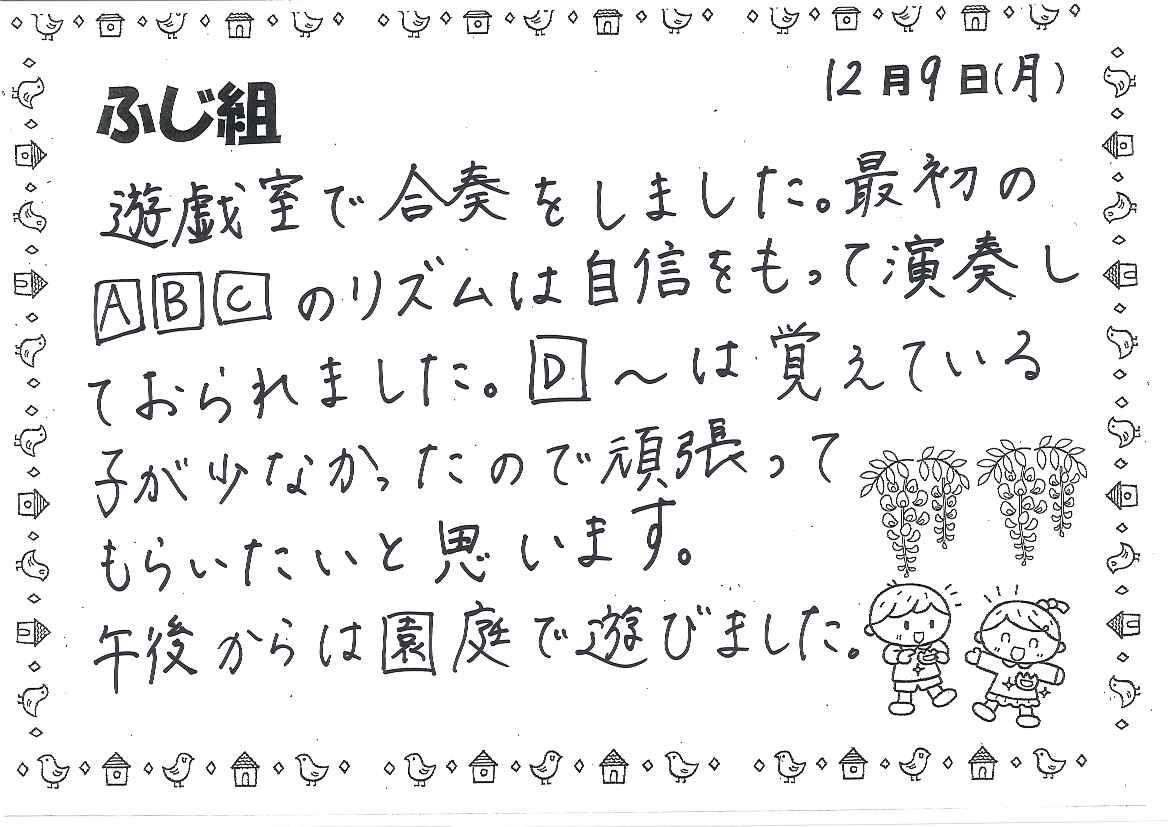 12月9日(月)
ふじ組
遊戯室で合奏をしました。最初の
A B C のリズムは自信をもって演奏し
ておられました。D～は覚えている
子が少なかったので頑張って
もらいたいと思います。
午後からは園庭で遊びました。